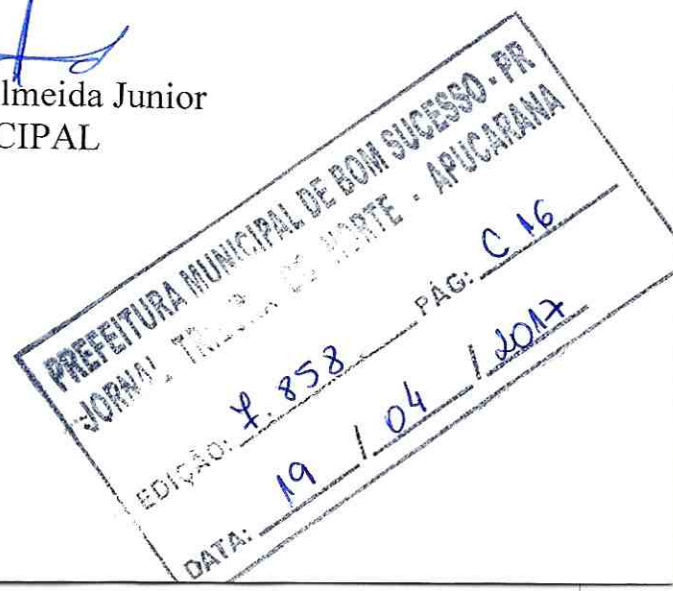 lmeida Junior
CIPAL
PREFEITURA MUNICIPAL DE BOM SUCESSO - PR
JORNAL TRIBUNA DO NORTE - APUCARANA
EDIÇÃO: 7.858 PÁG: C 16
DATA: 19 / 04 / 2017